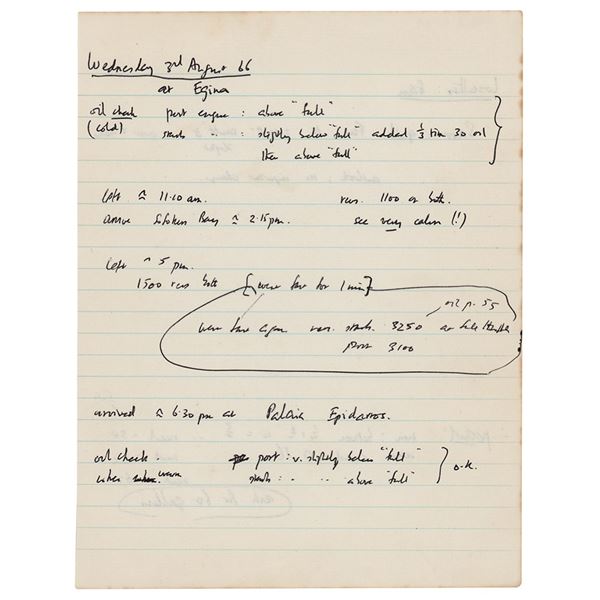 Wednesday 3rd August 66
at Egina
oil check port engine : above "full"
(cold) starb. " : slightly below "full" added 1/3 tin 30 oil
then above "full"
left ≈ 11.10 am. revs. 1100 on both.
arrive Bay ≈ 2.15 pm. sea very calm (!)
left ≈ 5 pm.
1500 revs both [were fare for 1 min]
oil p. 55
were fare again revs. starb. 3250 at full throttle
port 3100
arrived ≈ 6.30 pm at Palaia Epidavros.
oil check. port : v. slightly below "full"
when warm starb : " " above "full" } o.k.